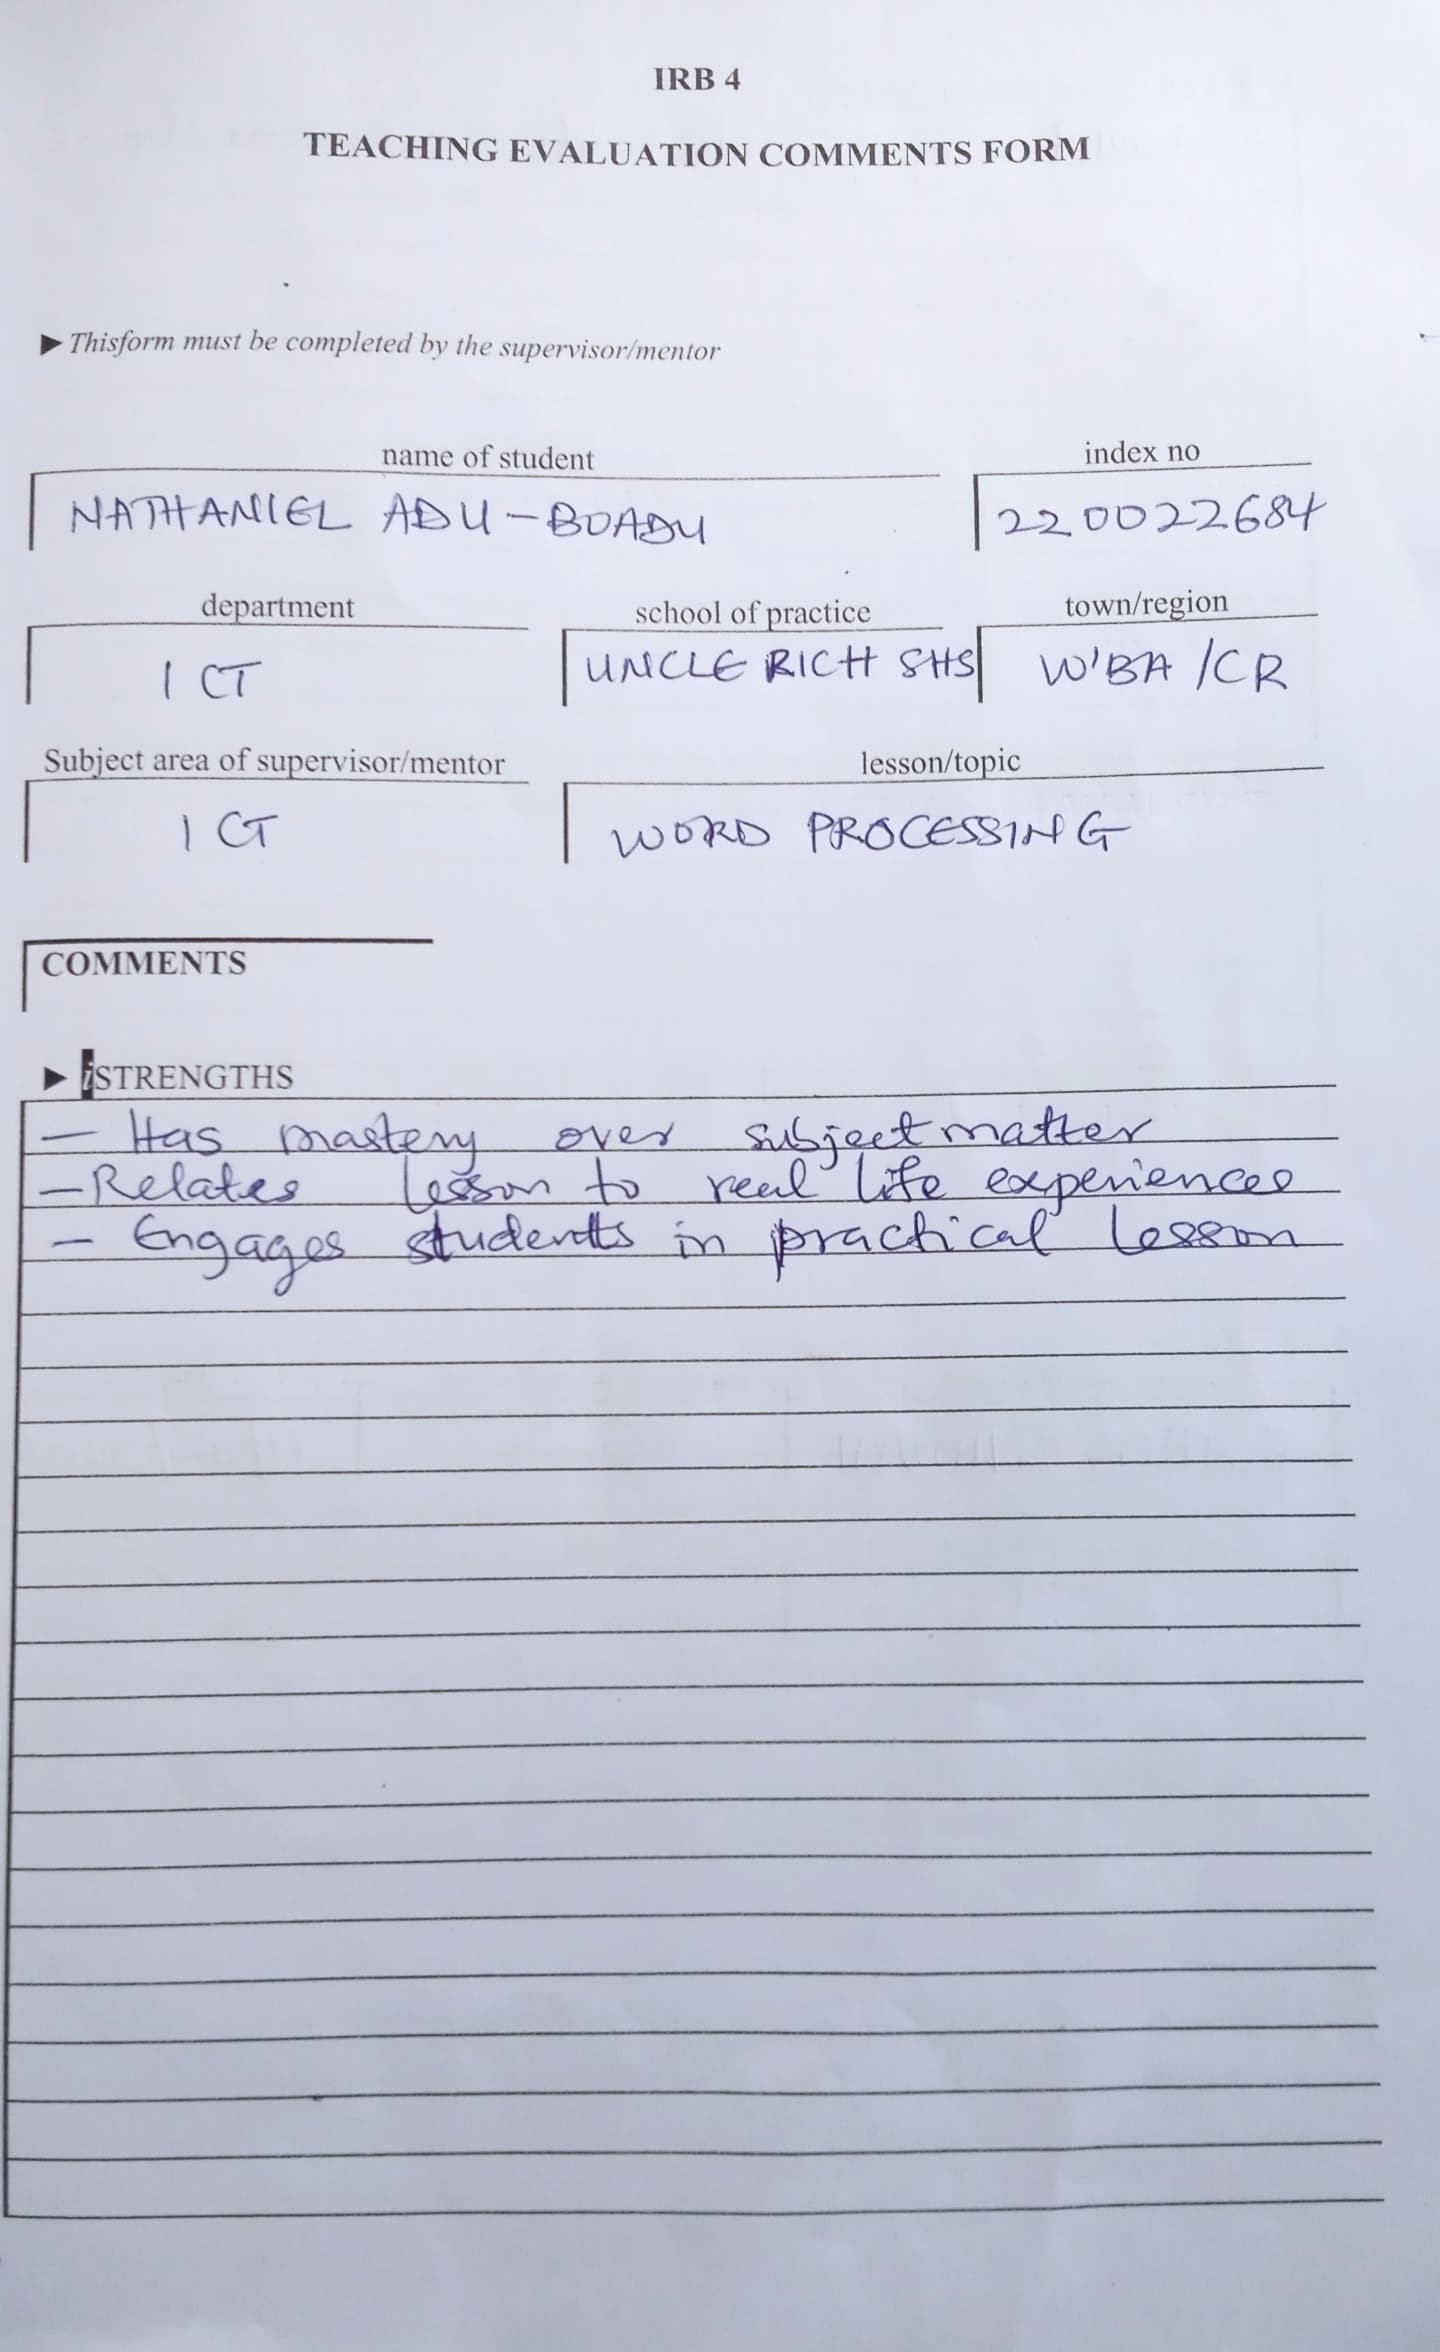 IRB 4
TEACHING EVALUATION COMMENTS FORM
▶ Thisform must be completed by the supervisor/mentor
name of student index no
NATHANIEL ADU-BOADU 220022684
department school of practice town/region
ICT UNCLE RICH SHS W'BA /CR
Subject area of supervisor/mentor lesson/topic
ICT WORD PROCESSING
COMMENTS
▶ iSTRENGTHS
- Has mastery over subject matter
- Relates lesson to real life experiences
- Engages students in practical lesson